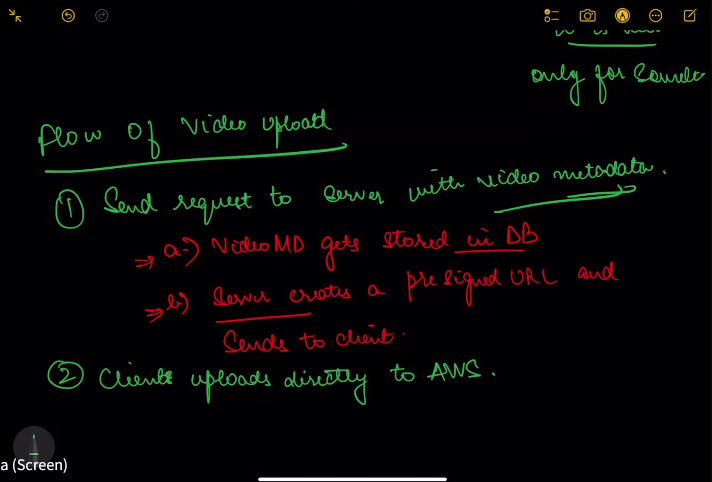 only for
flow of video upload
① Send request to server with video metadata.
⇒ a.) Video MD gets stored in DB
⇒ b) Server creates a presigned URL and
Sends to client.
② Clients uploads directly to AWS.
a (Screen)